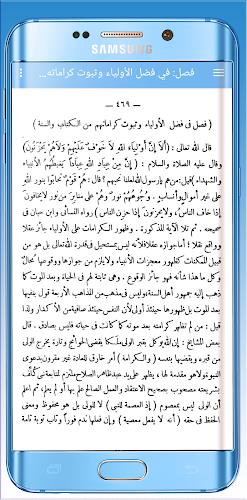 SAMSUNG
فصل: في فضل الأولياء وثبوت كراماته...
— ٤٦٩ —
( فصل فى فضل الأولياء وثبوت كراماتهم من الكتاب والسنة )
قال الله تعالى : ( ألا إن أولياء الله لا خوف عليهم ولاهم يحزنون )
وقال عليه الصلاة والسلام : ( إن من عباد الله عباداً يغبطهم الأنبياء
والشهداء ) قيل : من هم يارسول الله لعلنا نحبهم ؟ قال : هم قوم تحابوا بنور الله
على غير أموال وأنساب ، وجوههم نور وهم على منابر من نور لايخافون
إذا خاف الناس ، ولا يحزنون إذا حزن الناس ) رواه النسائى وابن حبان فى
صحيحه . ثم تلا الآية المذكورة . وظهور الكرامات على الأولياء جائز عقلا
وواقع نقلا ؛ أما جوازه عقلا فلأنه ليس بمستحيل فى قدرة الله تعالى بل هو من
قبيل الممكنات كظهور معجزات الأنبياء ولا يلزم من جوازها ووقوعها محال
وكل ما هذا شأنه فهو جائز الوقوع . وهى ثابتة لهم فى الحياة وبعد الموت كما
ذهب إليه جمهور أهل السنة وليس فى مذهب من المذاهب الأربعة قول بنفيها
بعد الموت بل ظهورها حينئذ أولى لأن النفس حينئذ صافية من الأكدار ولذا
قيل : من لم تظهر كرامته بعد موته كما كانت فى حياته فليس بصادق . قال
بعض المشايخ : إن الله يوكل بقبر الولى ملكا يقضى الحوائج وتارة يخرج الولى
من قبره ويقضيها بنفسه ( والكرامة ) أمر خارق للعادة غير مقرون بدعوى
النبوة ولا هو مقدمة لها ، يظهر على يد عبد ظاهر الصلاح ملتزم لمتابعة نبى كلف
بشريعته مصحوب بصحيح الاعتقاد والعمل الصالح علم بها أو لم يعلم ، ثم اعلم
أن الولى ليس بمعصوم ( إذ العصمة للنبى ) لا للولى بل هو محفوظ ومعنى
الحفظ فى حقه ( أنه لا يفعل معصية ) وإن فعلها ندم فوراً وتاب توبة تامة